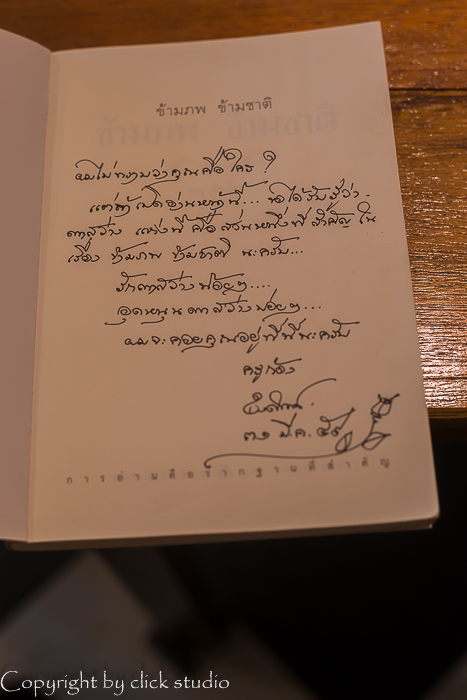 ข้ามภพ ข้ามชาติ
ผมไม่ทราบว่าคุณคือใคร ?
แต่ถ้าได้อ่านหน้านี้... ให้รับรู้ว่า
ตาสว่าง แห่งนี้ คือส่วนหนึ่งที่สำคัญ ใน
เรื่อง ข้ามภพ ข้ามชาติ นะครับ...
รักตาสว่าง บ่อยๆ....
อุดหนุนตาสว่างบ่อยๆ...
ผมจะคอยคุณอยู่ที่นี่นะครับ
๓๑ มี.ค. ๕๙
การอ่านคือรากฐานที่สำคัญ
Copyright by click studio